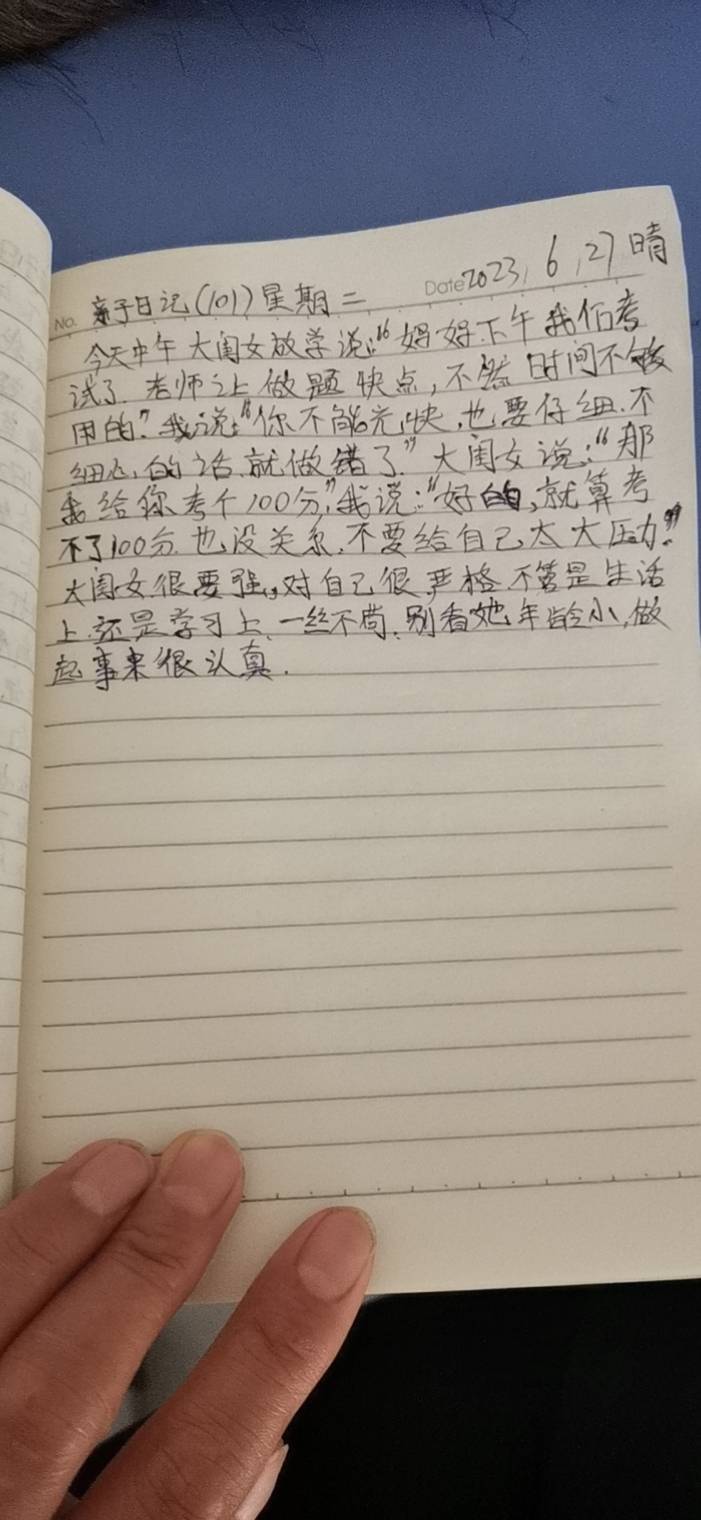 Date 2023, 6, 27 晴
No. 亲子日记(101)星期二
今天中午大闺女放学说:“妈妈下午我们考
试了.老师让做题快点,不然时间不够
用的”我说:“你不能光快,也要仔细.不
细心的话就做错了”大闺女说:“那
我给你考个100分”我说:“好的,就算考
不了100分也没关系.不要给自己太大压力”
大闺女很要强,对自己很严格不管是生活
上还是学习上,一丝不苟,别看她年龄小,做
起事来很认真.